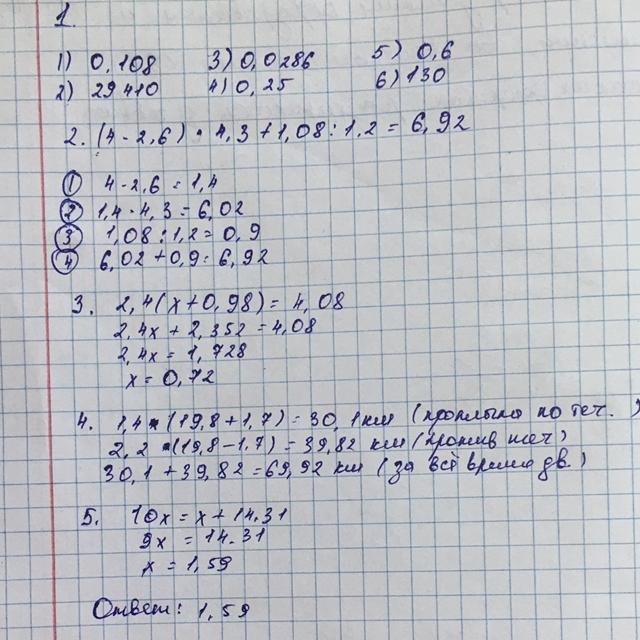 1.
1) 0,108 3) 0,0286 5) 0,6
2) 29410 4) 0,25 6) 130
2. (4-2,6) · 4,3 + 1,08 : 1,2 = 6,92
① 4-2,6 = 1,4
② 1,4 · 4,3 = 6,02
③ 1,08 : 1,2 = 0,9
④ 6,02 + 0,9 = 6,92
3. 2,4(x+0,98) = 4,08
2,4x + 2,352 = 4,08
2,4x = 1,728
x = 0,72
4. 1,4 · (19,8 + 1,7) = 30,1 км (проплыла по теч.)
2,2 · (19,8 - 1,7) = 39,82 км (против теч)
30,1 + 39,82 = 69,92 км (за всё время дв.)
5. 10x = x + 14.31
9x = 14.31
x = 1,59
Ответ: 1,59